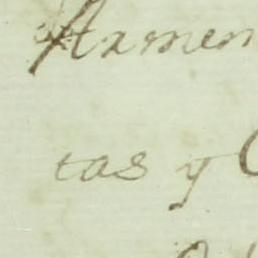 Armen
tas y